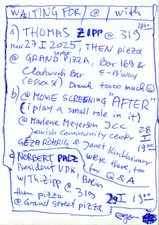 WAITING FOR / @ with
a) THOMAS ZIPP @ 319
Nov 27 I 2025, THEN pizza
@ GRAND PIZZA, Bar 169 &
Clockwork Bar E-B'way
(Essex St) Drank tooo much
b) @ MOVIE SCREENING "AFTER"
(i play a small role in it)
@ Marlene Meyerson JCC 28
Jewish community center I
GEZA RÖHRIG & Janet Kirchheimer 19
c) NORBERT PALZ were there, too
President UDK, for Q & A
w/Th. Zipp @ Baxin
then pizza 319 29 I 19
@ Grand Street pizza